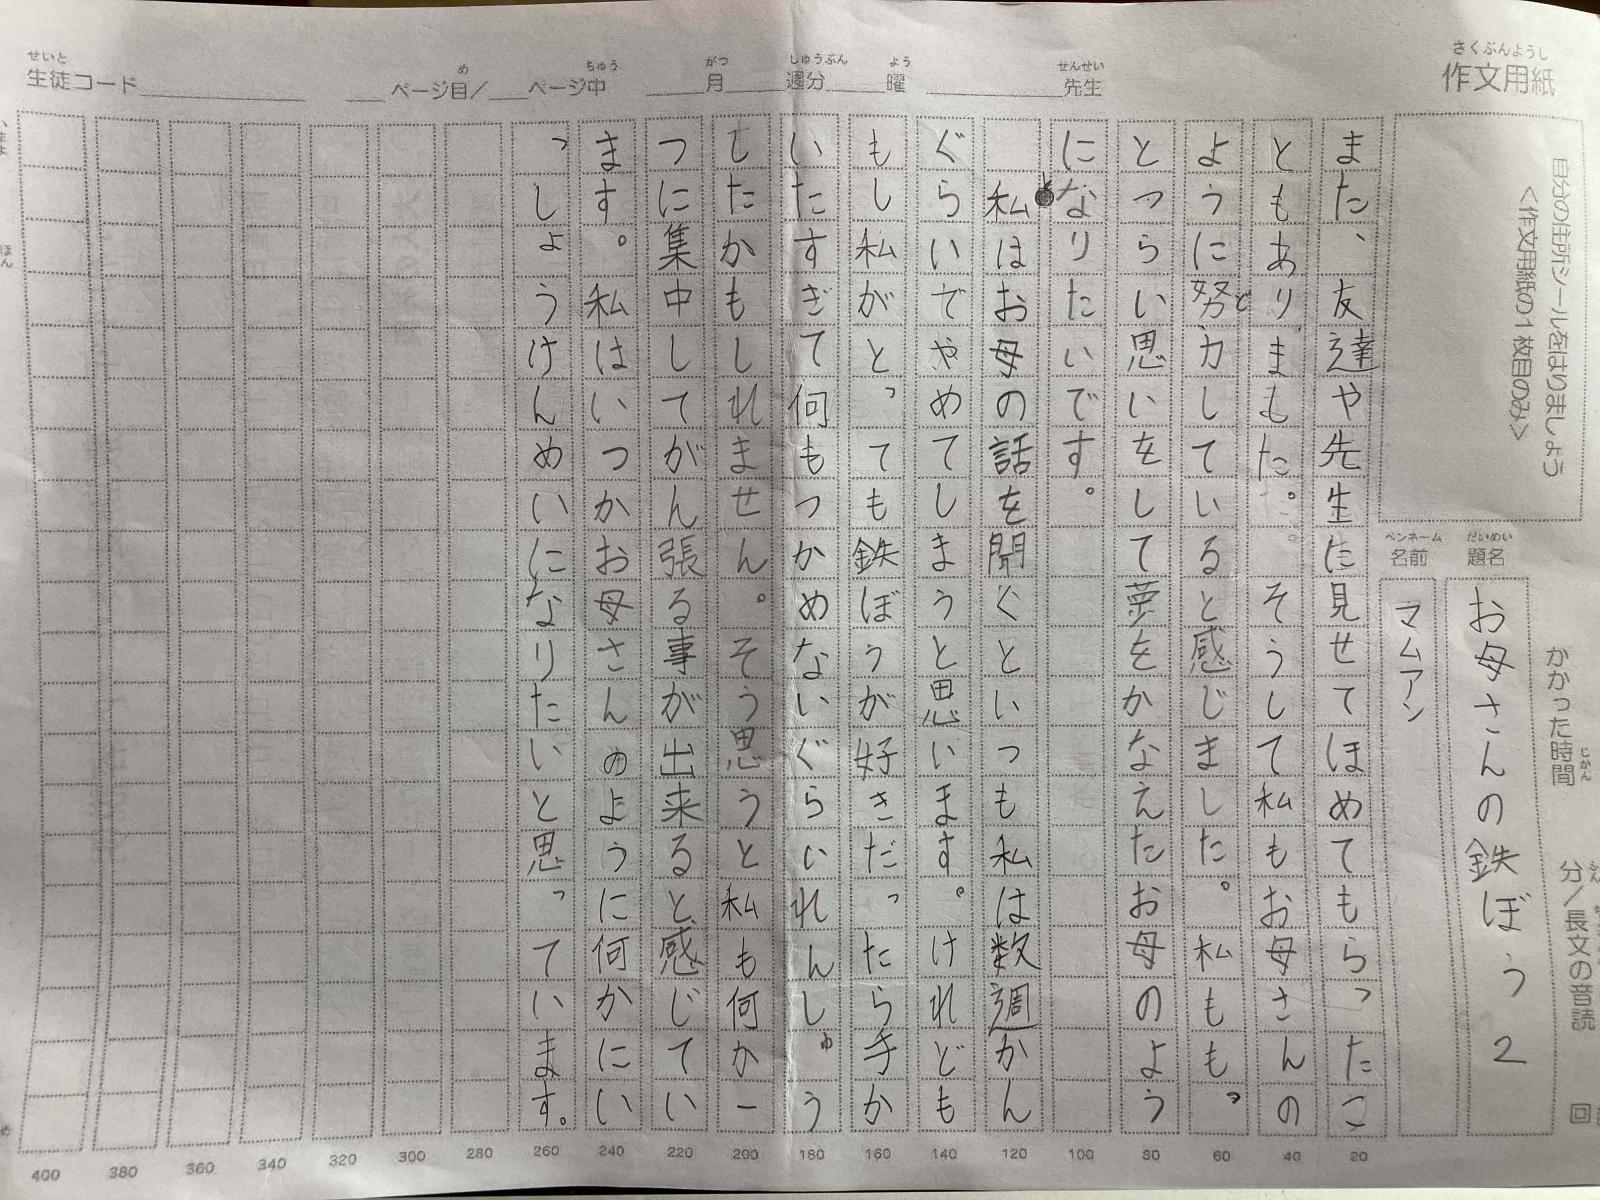 作文用紙
さくぶんようし
先生
せんせい
曜
よう
週分
しゅうぶん
月
がつ
ページ目/ ページ中
め
ちゅう
生徒コード
せいと
自分の住所シールをはりましょう
<作文用紙の1枚目のみ>
かかった時間
じかん
分/長文の音読
回
題名
だいめい
お母さんの鉄ぼう 2
名前
ペンネーム
マムアン
また、友達や先生に見せてほめてもらったこ
ともありました。 そうして私もお母さんの
ように努力していると感じました。私ももっ
ど
とつらい思いをして夢をかなえたお母のよう
になりたいです。
私はお母の話を聞くといつも私は数週かん
ぐらいでやめてしまうと思います。けれども
もし私がとっても鉄ぼうが好きだったら手か
いたすぎて何もつかめないぐらいれんしゅう
したかもしれません。そう思うと私も何か一
つに集中してがん張る事が出来ると感じてい
ます。私はいつかお母さんのように何かにい
っしょうけんめいになりたいと思っています。
20
40
60
80
100
120
140
160
180
200
220
240
260
280
300
320
340
360
380
400